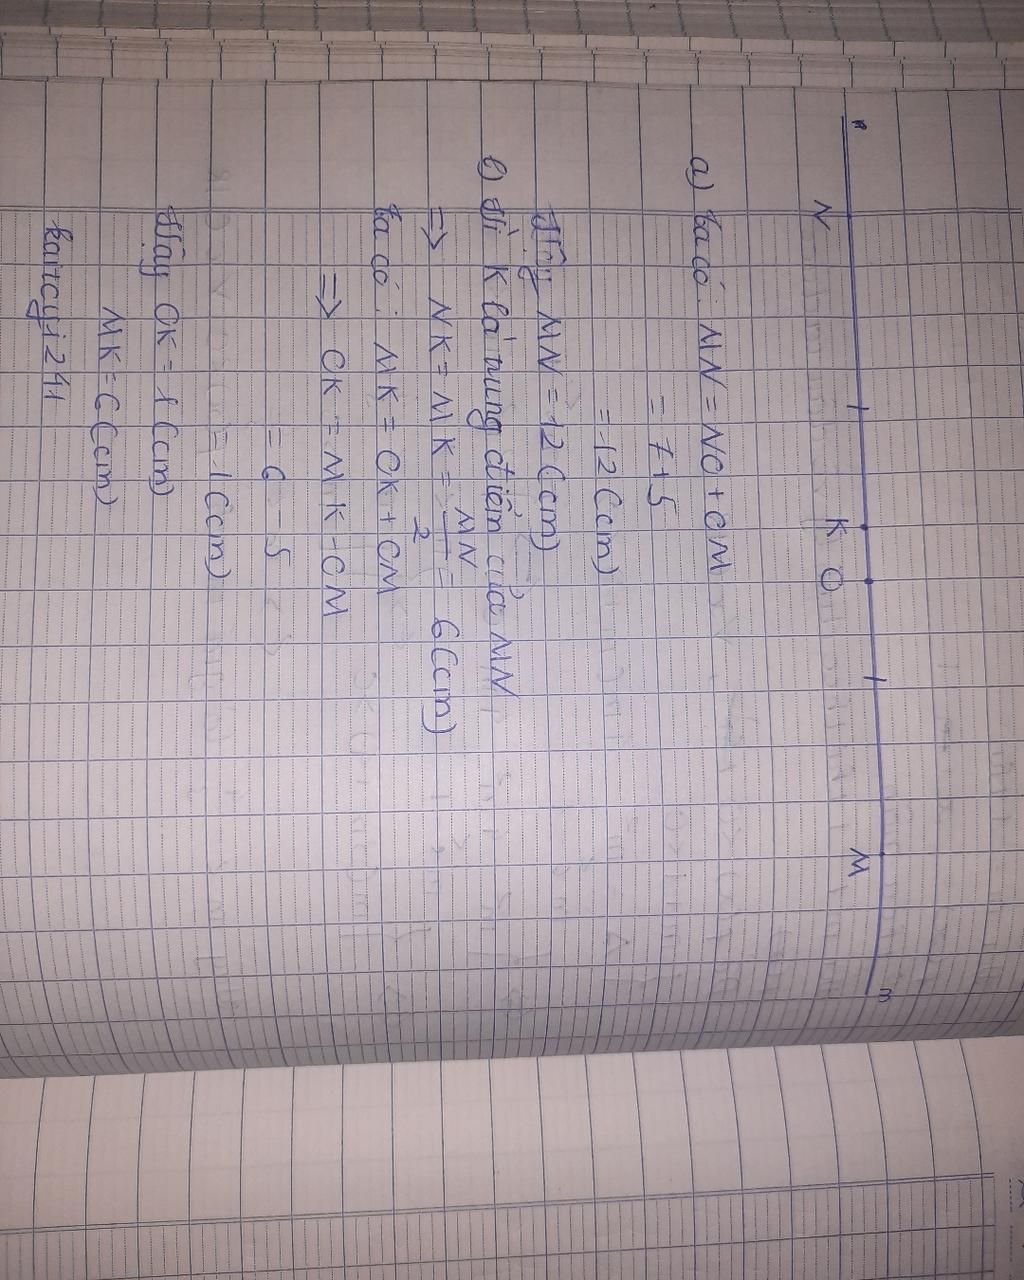 n
N K O M m
a) Ta có: MN = NO + OM
= 7 + 5
= 12 (cm)
Vậy MN = 12 (cm)
b) Vì K là trung điểm của MN
=> NK = MK = MN/2 = 6 (cm)
Ta có: MK = OK + OM
=> OK = MK - OM
= 6 - 5
= 1 (cm)
Vậy OK = 1 (cm)
MK = 6 (cm)
kanicyji241